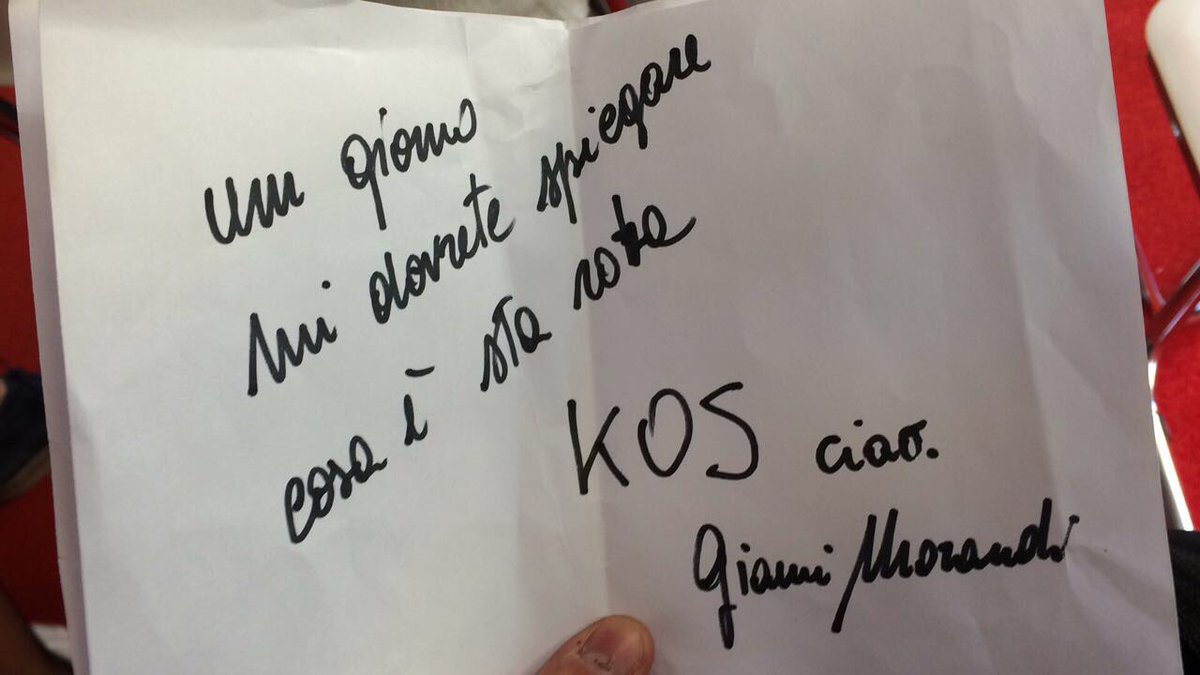 un giorno
mi dovrete spiegare
cosa è sta roba
KOS ciao.
Gianni Morandi